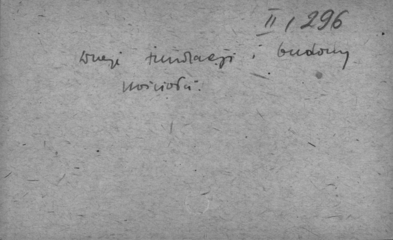 II / 296
Dzieje fundacji i budowy
kościoła.